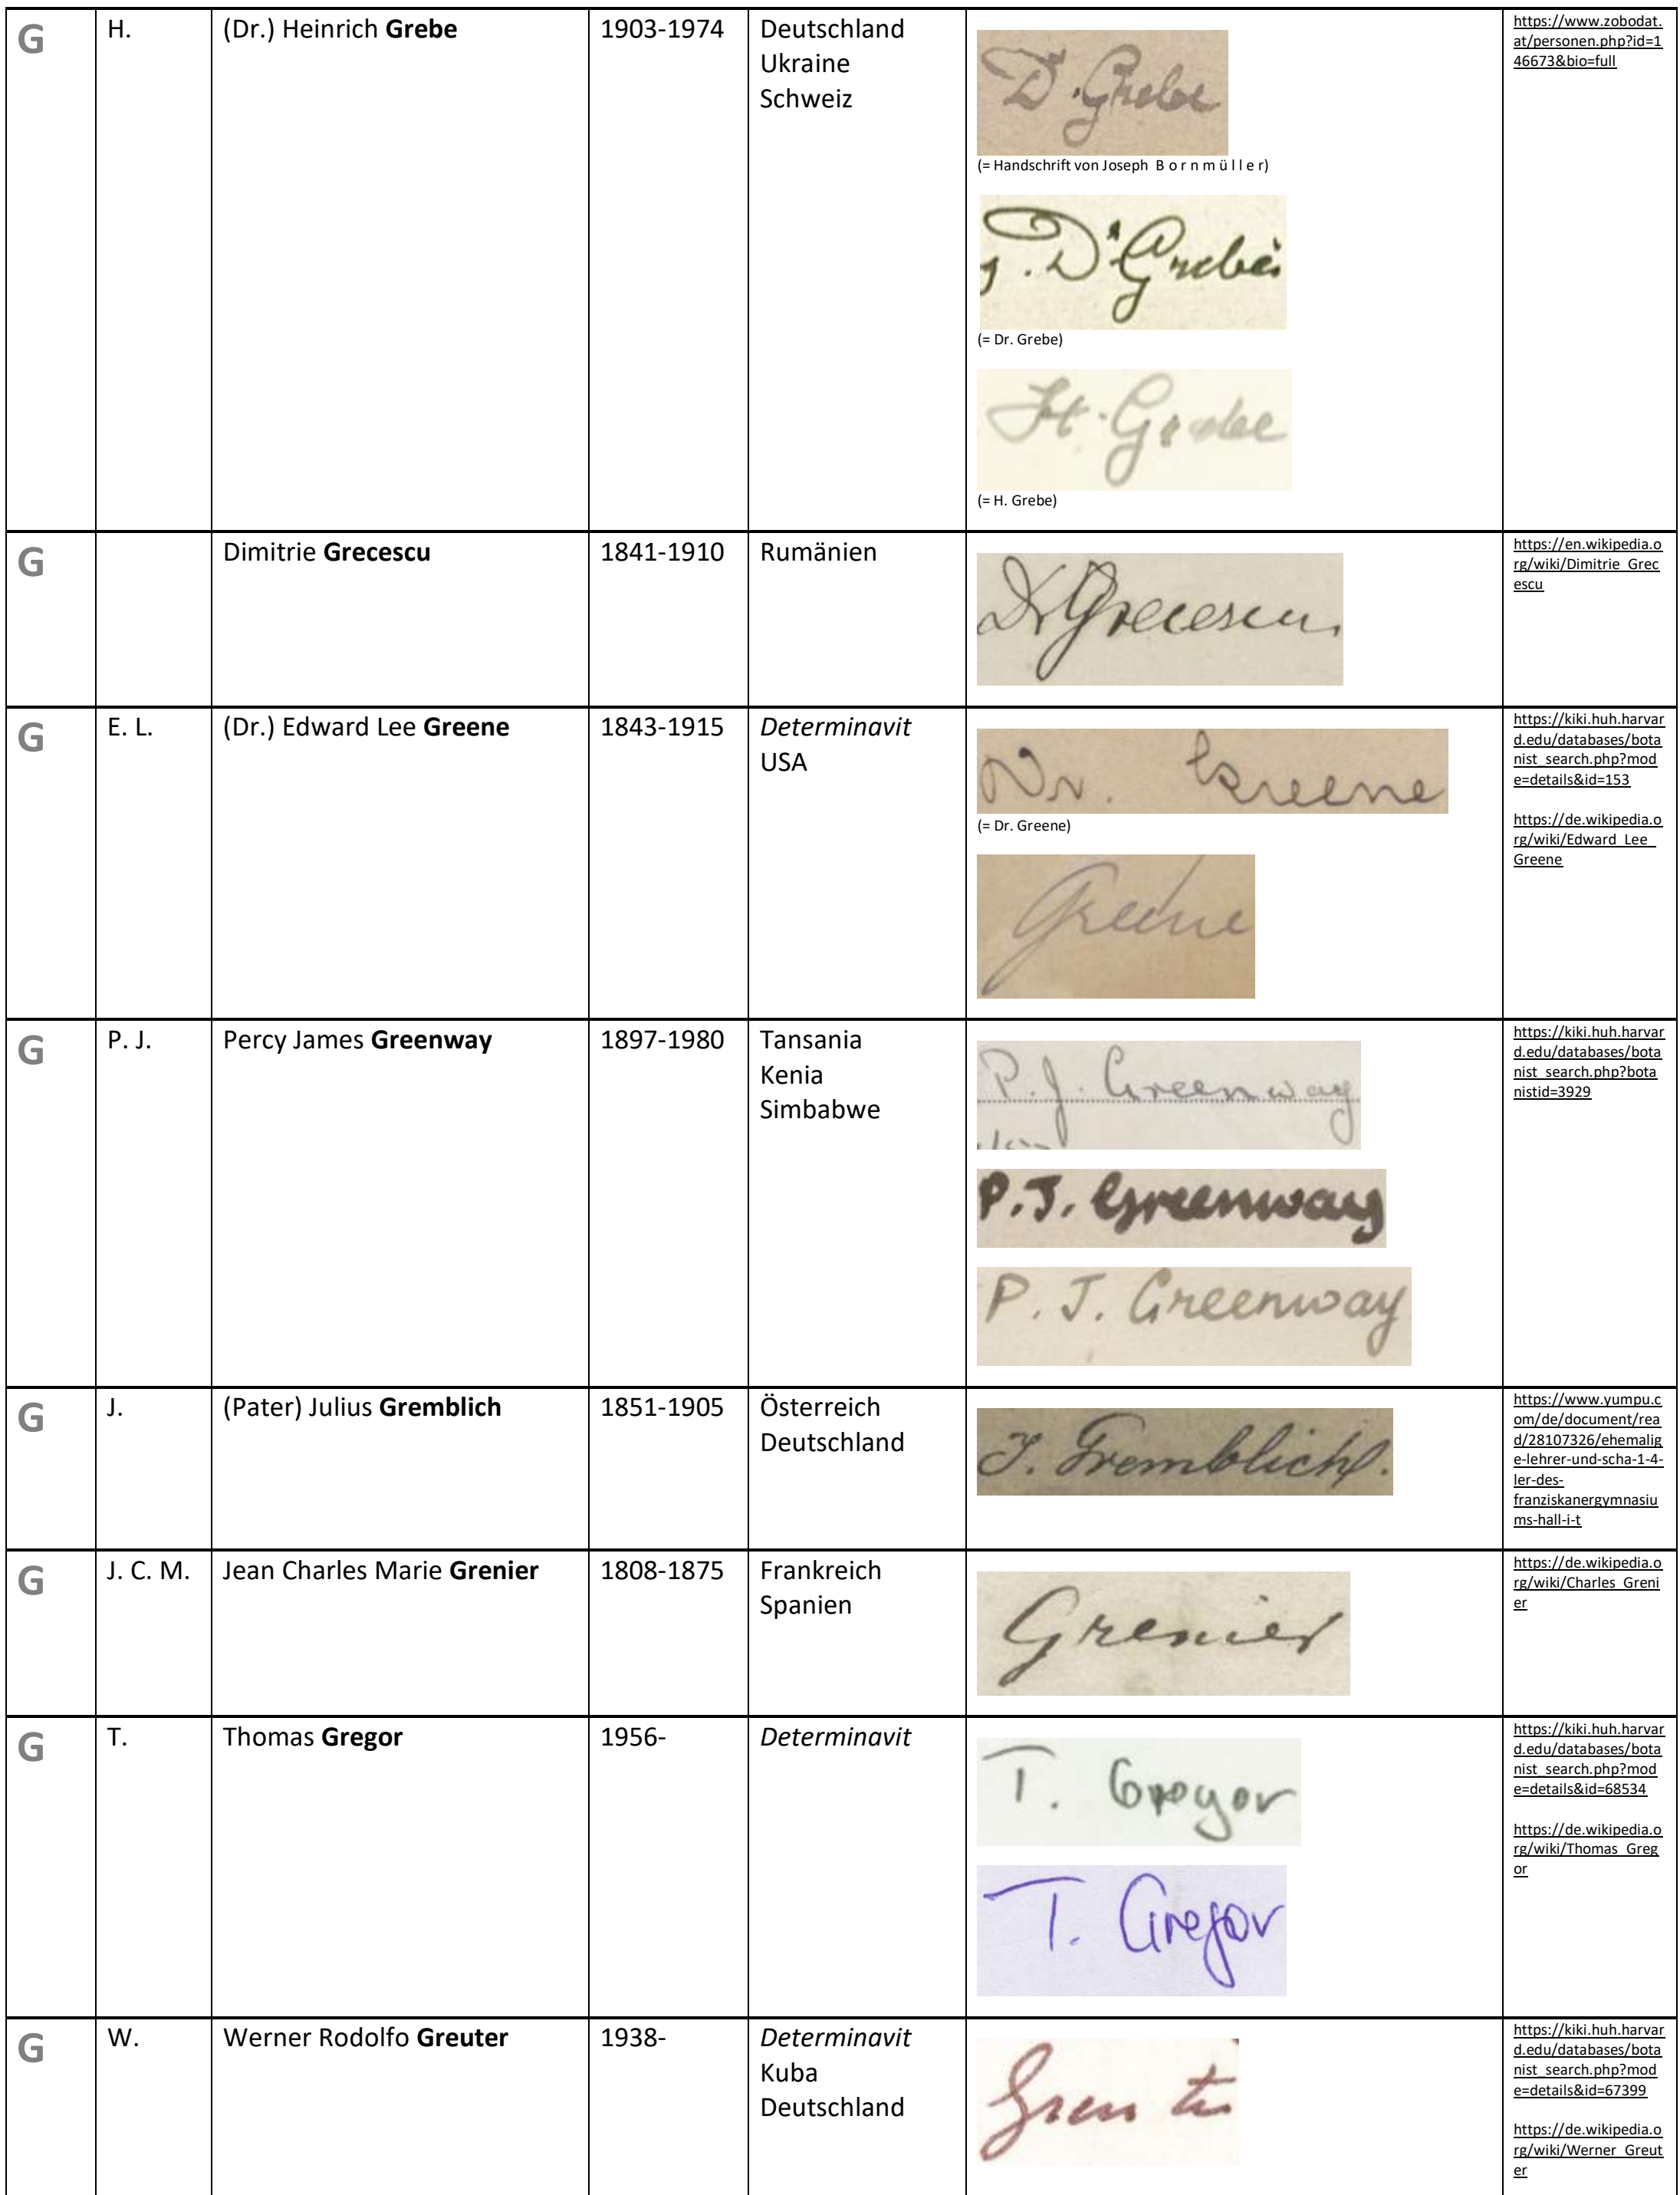 G
H.
(Dr.) Heinrich Grebe
1903-1974
Deutschland
Ukraine
Schweiz
Dr. Grebe
(= Handschrift von Joseph B o r n m ü l l e r)
Dr. Grebe
(= Dr. Grebe)
H. Grebe
(= H. Grebe)
https://www.zobodat.
at/personen.php?id=1
46673&bio=full
G
Dimitrie Grecescu
1841-1910
Rumänien
Dr Grecescu
https://en.wikipedia.o
rg/wiki/Dimitrie_Grec
escu
G
E. L.
(Dr.) Edward Lee Greene
1843-1915
Determinavit
USA
Dr. Greene
(= Dr. Greene)
Greene
https://kiki.huh.harvar
d.edu/databases/bota
nist_search.php?mod
e=details&id=153
https://de.wikipedia.o
rg/wiki/Edward_Lee_
Greene
G
P. J.
Percy James Greenway
1897-1980
Tansania
Kenia
Simbabwe
P. J. Greenway
P. J. Greenway
P. J. Greenway
https://kiki.huh.harvar
d.edu/databases/bota
nist_search.php?bota
nistid=3929
G
J.
(Pater) Julius Gremblich
1851-1905
Österreich
Deutschland
J. Gremblich.
https://www.yumpu.c
om/de/document/rea
d/28107326/ehemalig
e-lehrer-und-scha-1-4-
ler-des-
franziskanergymnasiu
ms-hall-i-t
G
J. C. M.
Jean Charles Marie Grenier
1808-1875
Frankreich
Spanien
Grenier
https://de.wikipedia.o
rg/wiki/Charles_Greni
er
G
T.
Thomas Gregor
1956-
Determinavit
T. Gregor
T. Gregor
https://kiki.huh.harvar
d.edu/databases/bota
nist_search.php?mod
e=details&id=68534
https://de.wikipedia.o
rg/wiki/Thomas_Greg
or
G
W.
Werner Rodolfo Greuter
1938-
Determinavit
Kuba
Deutschland
Greuter
https://kiki.huh.harvar
d.edu/databases/bota
nist_search.php?mod
e=details&id=67399
https://de.wikipedia.o
rg/wiki/Werner_Greut
er